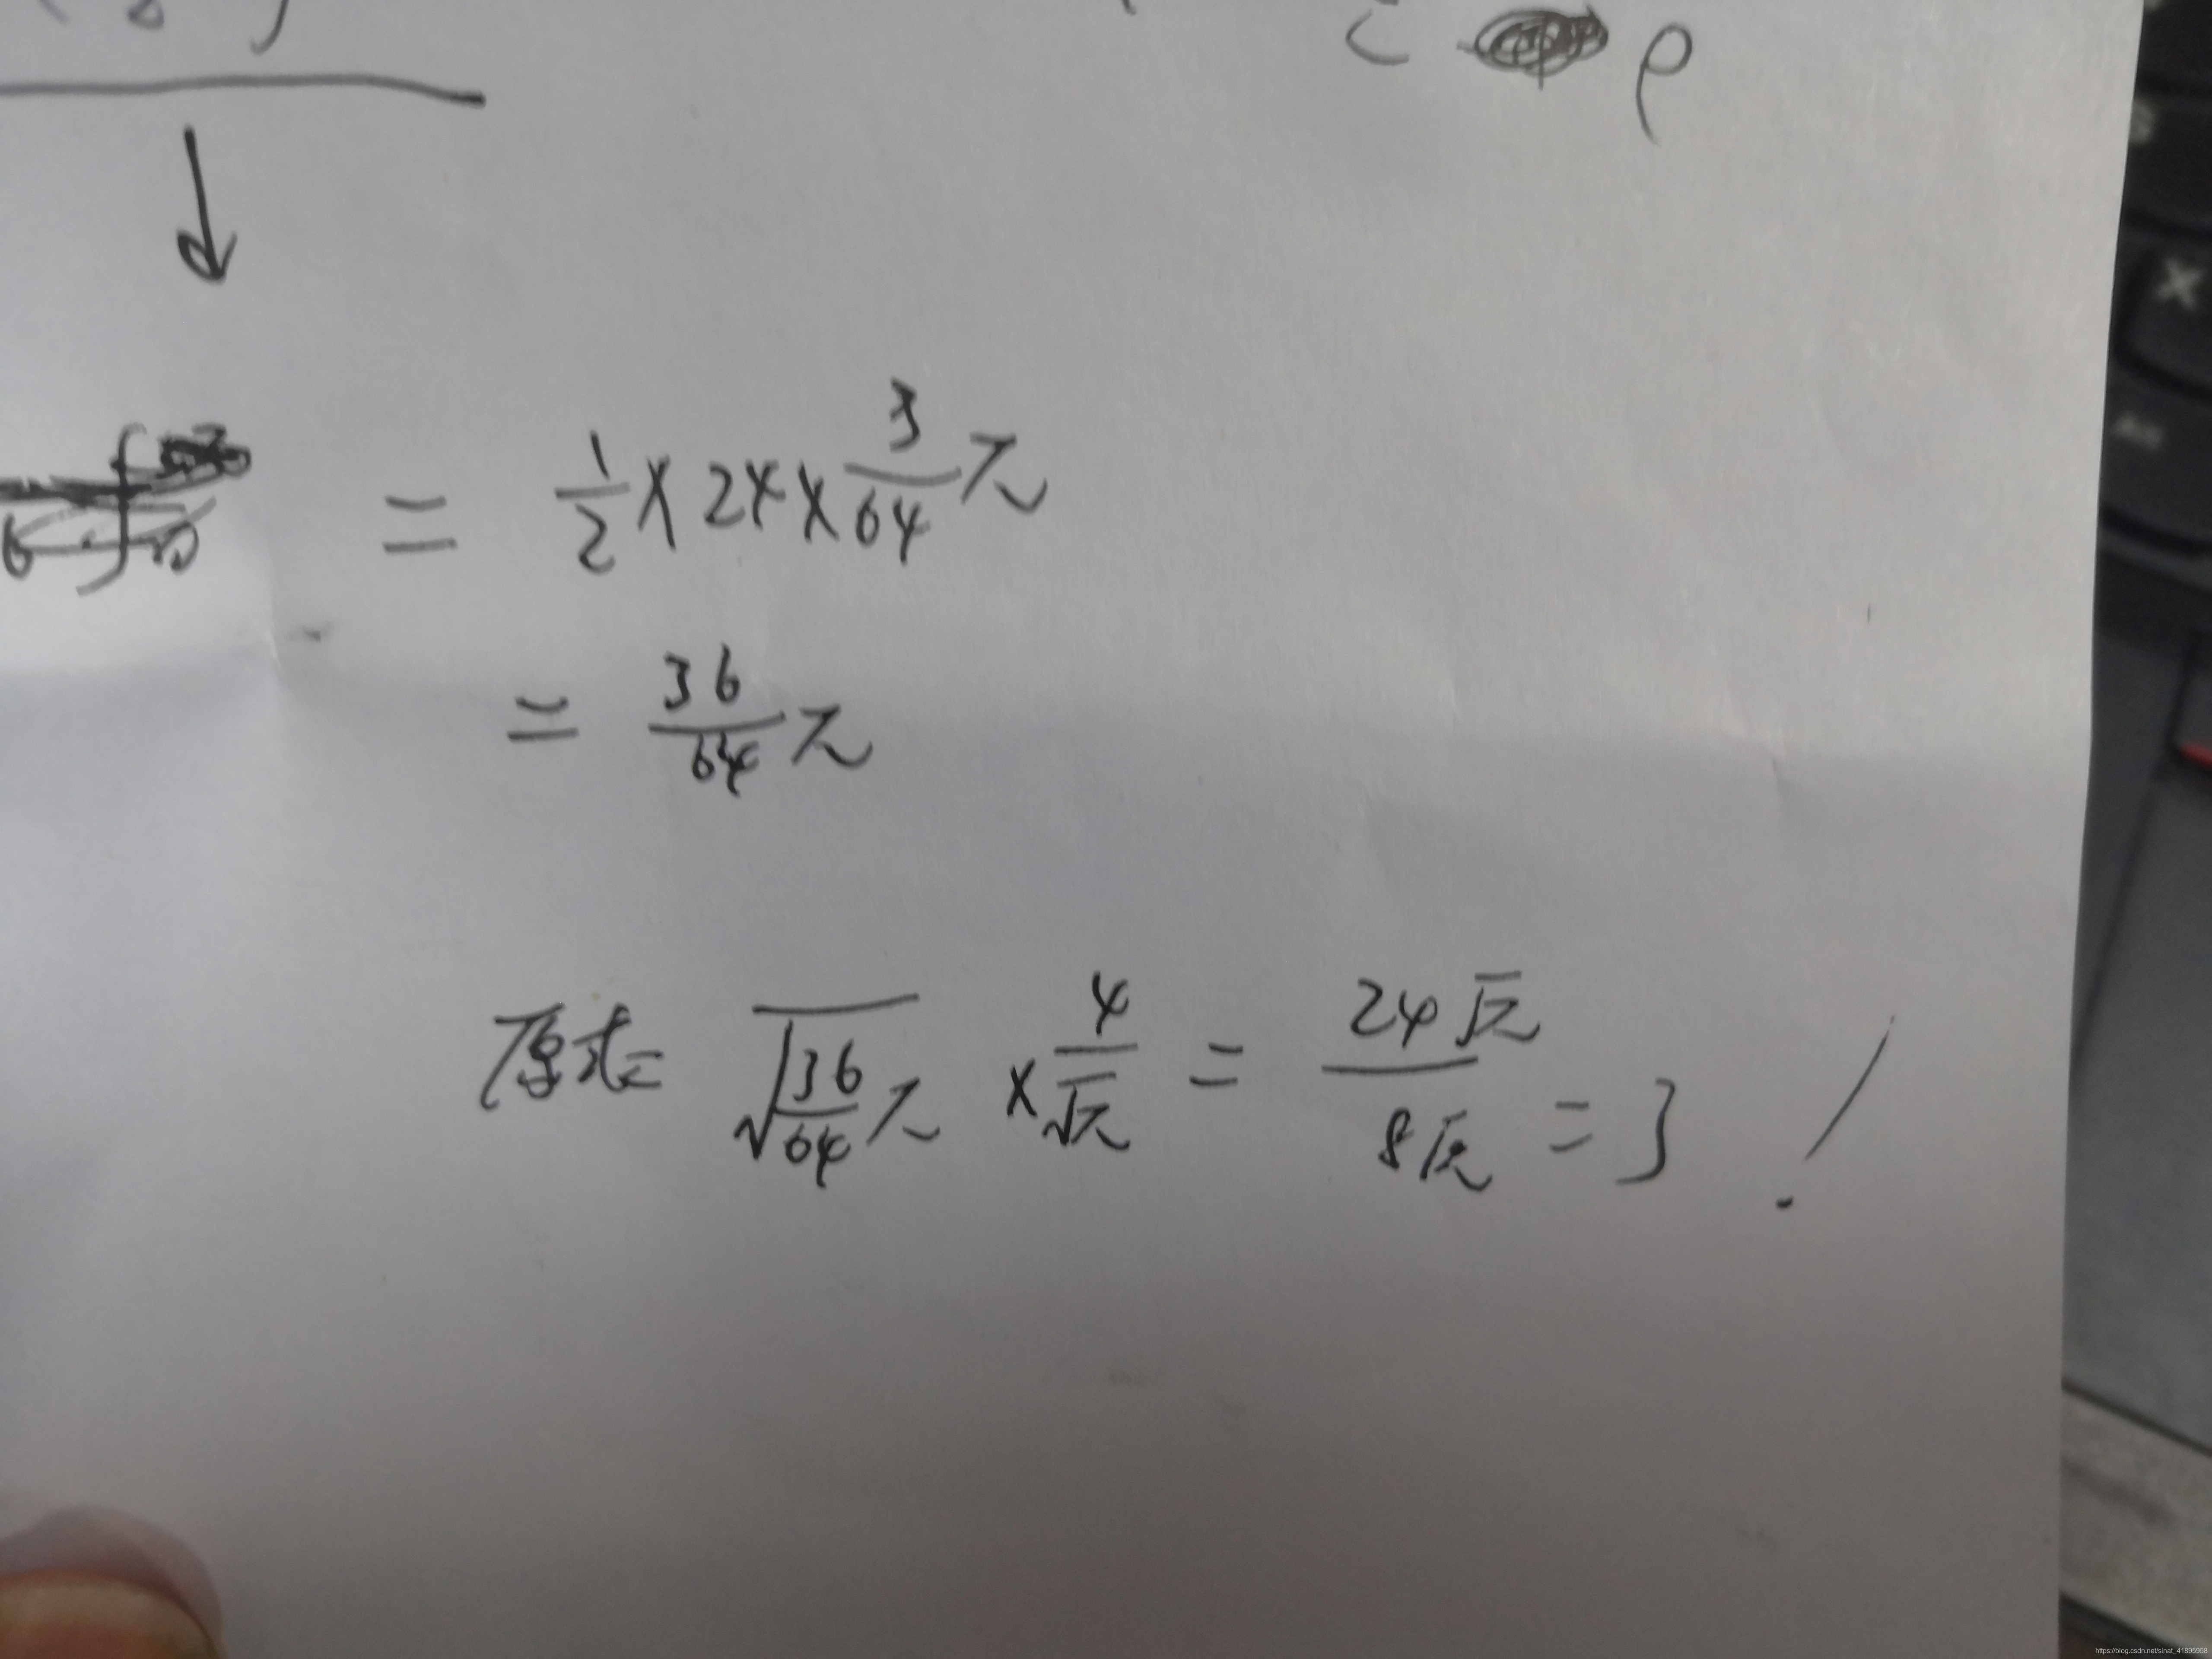 ρ
= 1/2 × 24 × 3/64 π
= 36/64 π
原式= √(36/64 π) × 4/√π = 24√π / 8√π = 3 !
X
https://blog.csdn.net/sinat_41895958